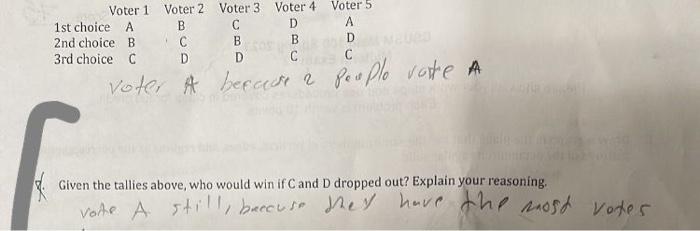 Voter 1 Voter 2 Voter 3 Voter 4 Voter 5
1st choice A B C D A
2nd choice B C B B D
3rd choice C D D C C
voter A because 2 people vote A
Given the tallies above, who would win if C and D dropped out? Explain your reasoning.
vote A still, becuse they have the most votes